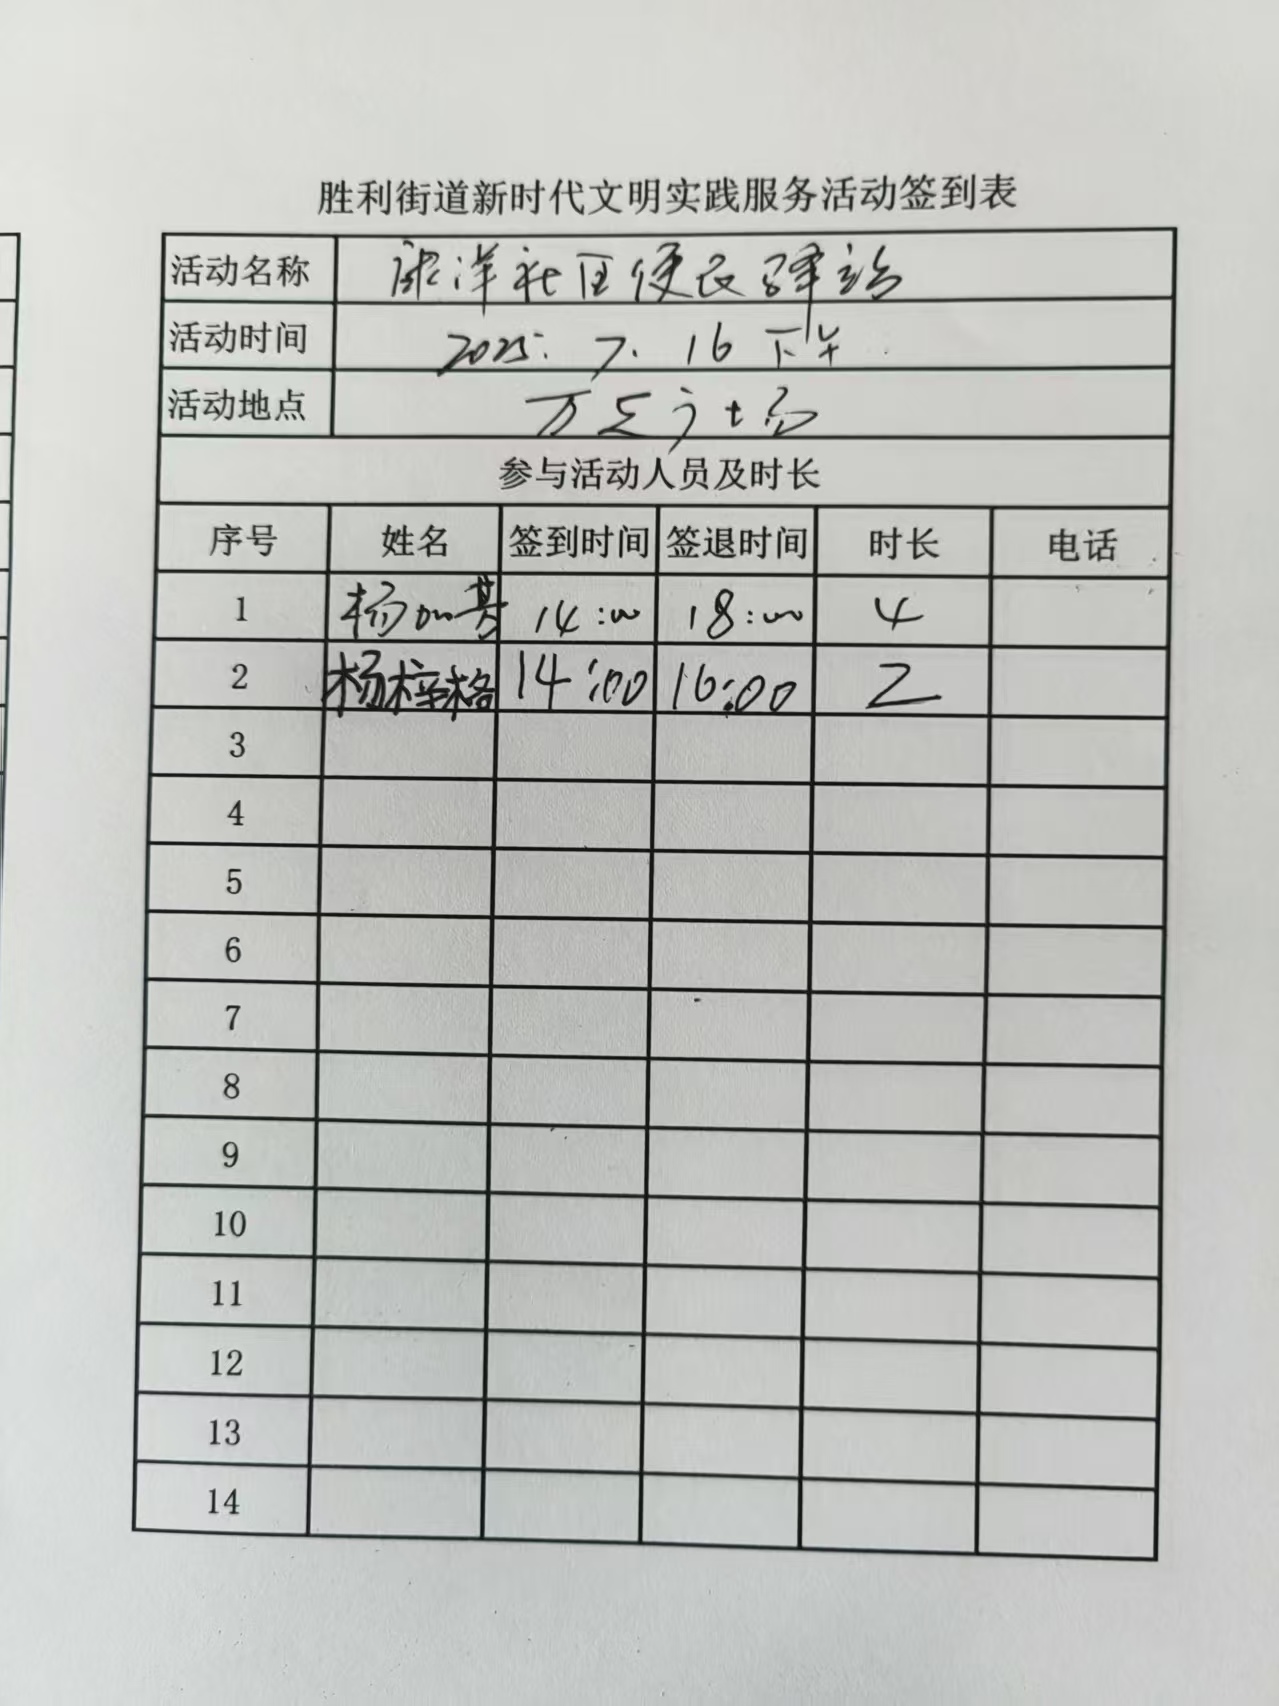 胜利街道新时代文明实践服务活动签到表
活动名称 康洋社区便民驿站
活动时间 2025.7.16下午
活动地点 万达广场
参与活动人员及时长
序号 姓名 签到时间 签退时间 时长 电话
1 杨 14:00 18:00 4
2 杨梓格 14:00 16:00 2
3
4
5
6
7
8
9
10
11
12
13
14